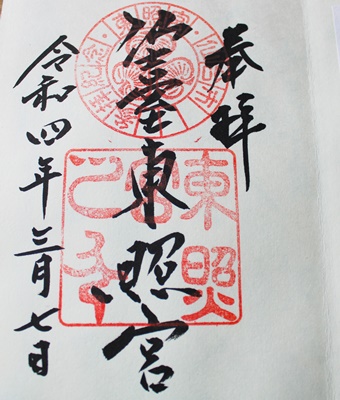 奉拝
仙臺東照宮
令和四年三月七日
東照
宮